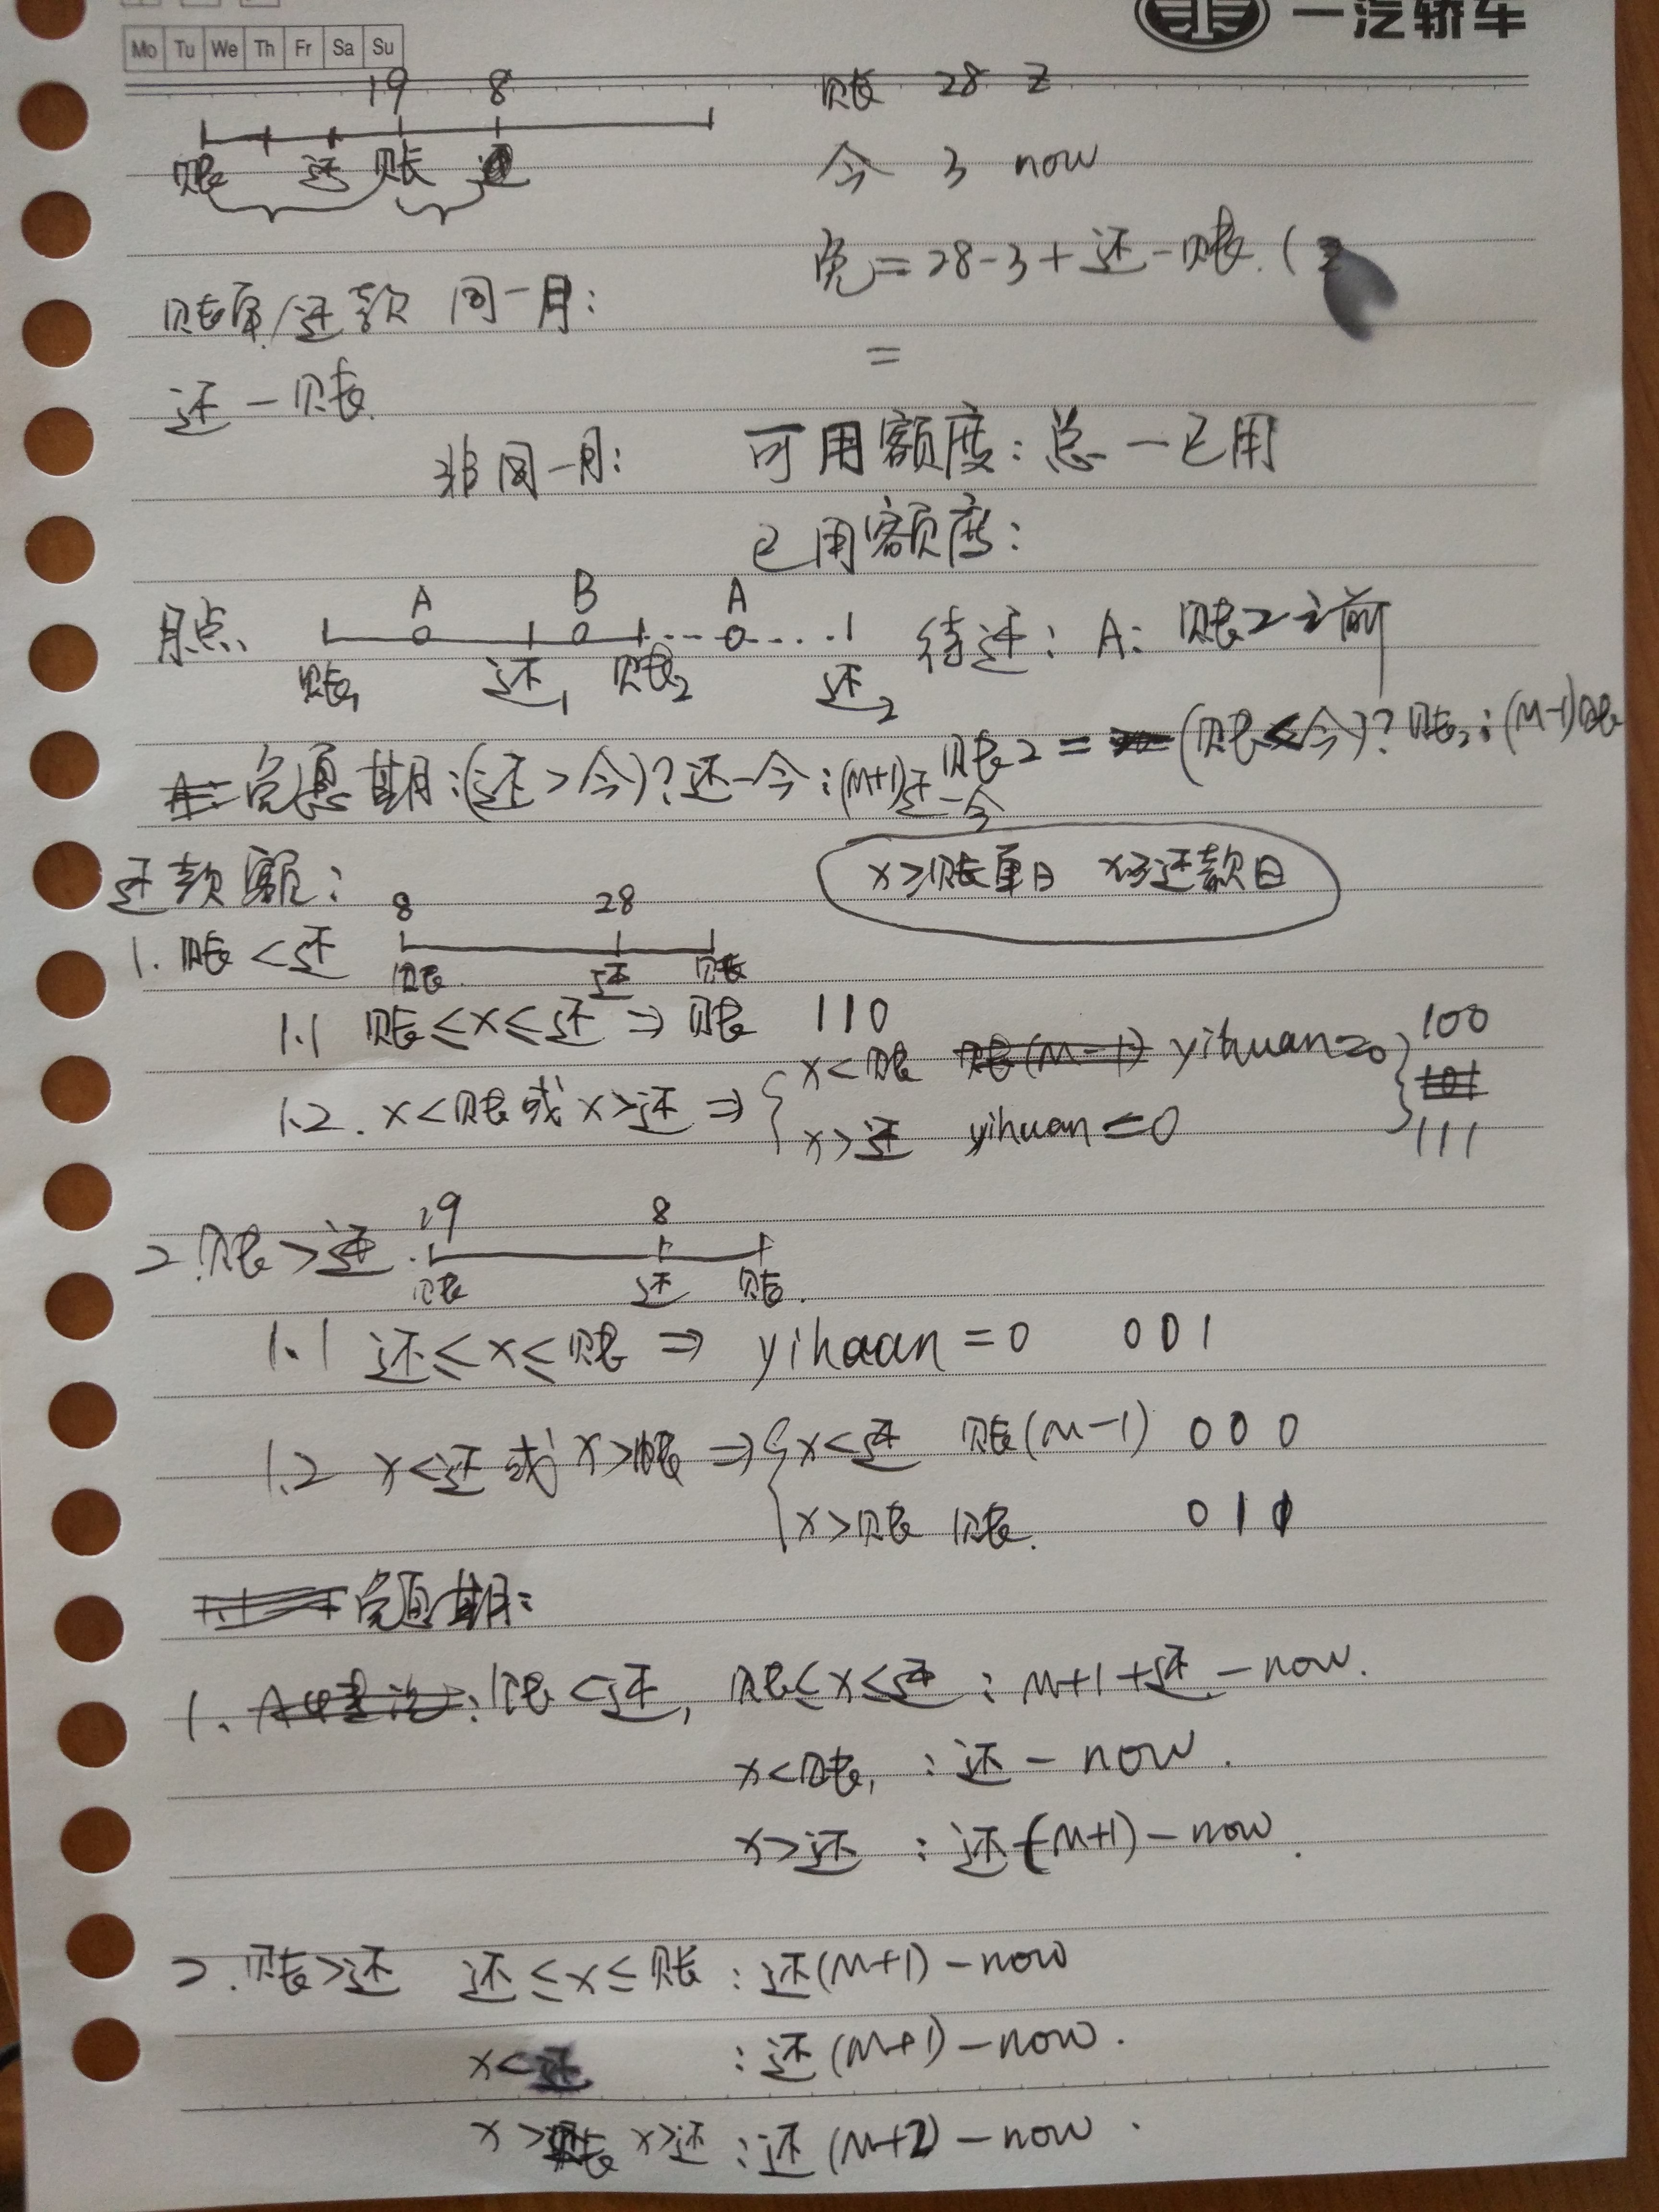 一汽轿车
Mo Tu We Th Fr Sa Su
19 8
账 还 账 还
账 28 z
今 3 now
免=28-3+还-账.(
账单/还款 同一月:
=
还-账.
非同一月:
可用额度:总-已用
已用额度:
A B A
账1 还1 账2 还2
待还: A: 账2之前
账2= (账<今)?账2:(M-1)账
免息期:(还>今)?还-今:(M+1)还-今
x≥账单日 x≤还款日
还款额:
8 28
1. 账<还
账 还 账
1.1 账≤x≤还 ⇒ 账 110
1.2. x<账或x>还 ⇒ { x<账 账(M-1) yihuan=0 } 100
101
x>还 yihuan=0 111
19 8
2.账>还
账 还 账.
1.1 还≤x≤账 ⇒ yihuan=0 001
1.2 x<还或x>账 ⇒ { x<还 账(M-1) 000
x>账 账. 010
免息期:
1. 账<还, 账≤x≤还: M+1+还-now.
x<账, :还-now.
x>还 :还(M+1)-now.
2.账>还 还≤x≤账:还(M+1)-now
x<还 :还(M+1)-now.
x>账 x>还:还(M+2)-now.